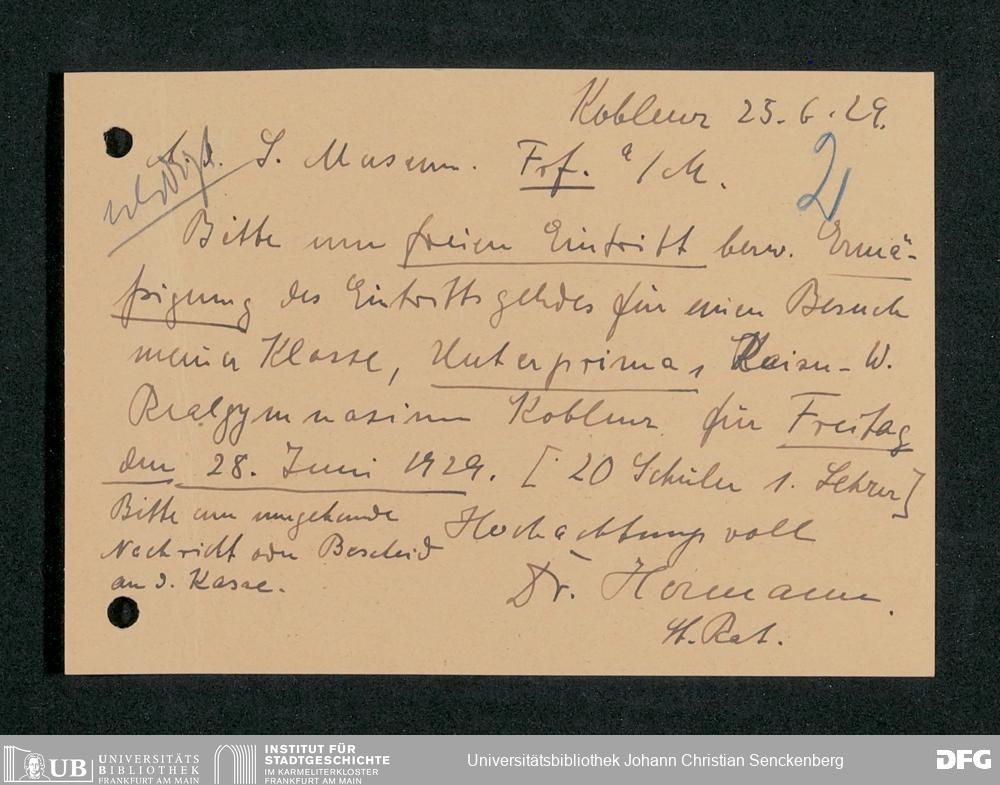 Koblenz 25. 6. 29.
S. Museum. Frf. a/M.
2
Bitte um freien Eintritt bezw. Ermä-
ßigung des Eintrittsgeldes für einen Besuch
meiner Klasse, Unterprima, Kaiser-W.
Realgymnasium Koblenz für Freitag
den 28. Juni 1929. [20 Schüler 1. Lehrer]
Bitte um umgehende
Nachricht oder Bescheid
an d. Kasse.
Hochachtungsvoll
Dr. Hermann.
St. Rat.
UB UNIVERSITÄTS
BIBLIOTHEK
FRANKFURT AM MAIN
INSTITUT FÜR
STADTGESCHICHTE
IM KARMELITERKLOSTER
FRANKFURT AM MAIN
Universitätsbibliothek Johann Christian Senckenberg
DFG